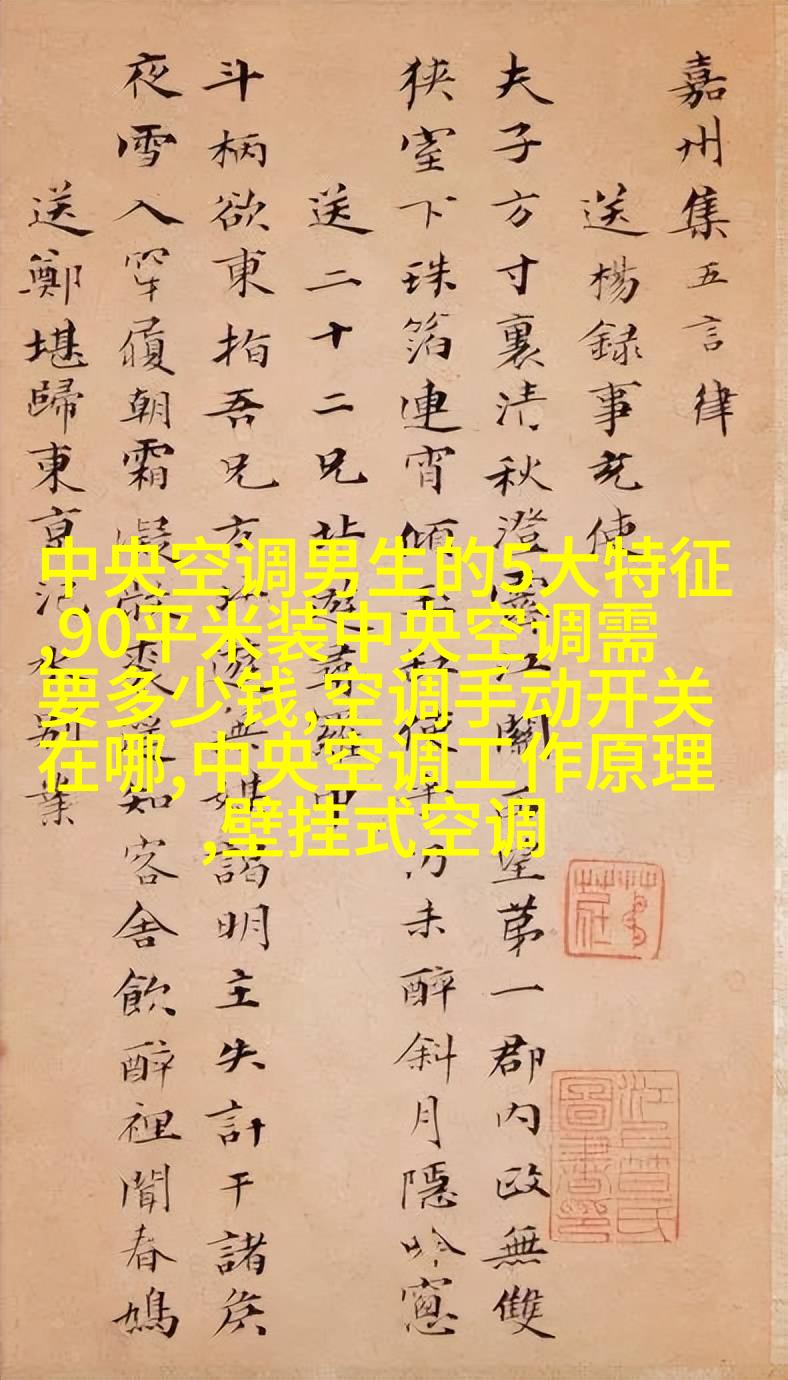 嘉州集五言律
送楊録事充使
夫子方寸裏清秋澄霽江關西望第一郡内政無雙
狹室下珠箔連宵傾玉未醉斜月隱吟窓
送二十二兄北遊尋羅中
斗柄欲東指吾兄方北遊無媒謁明主失計干諸侯
夜雪入穿履朝霜凝敝裘遥知客舍飲醉裡聞春鳩
送鄭堪歸東京汜水別業
中央空调男生的5大特征
,90平米装中央空调需
要多少钱,空调手动开关
在哪,中央空调工作原理
,壁挂式空调